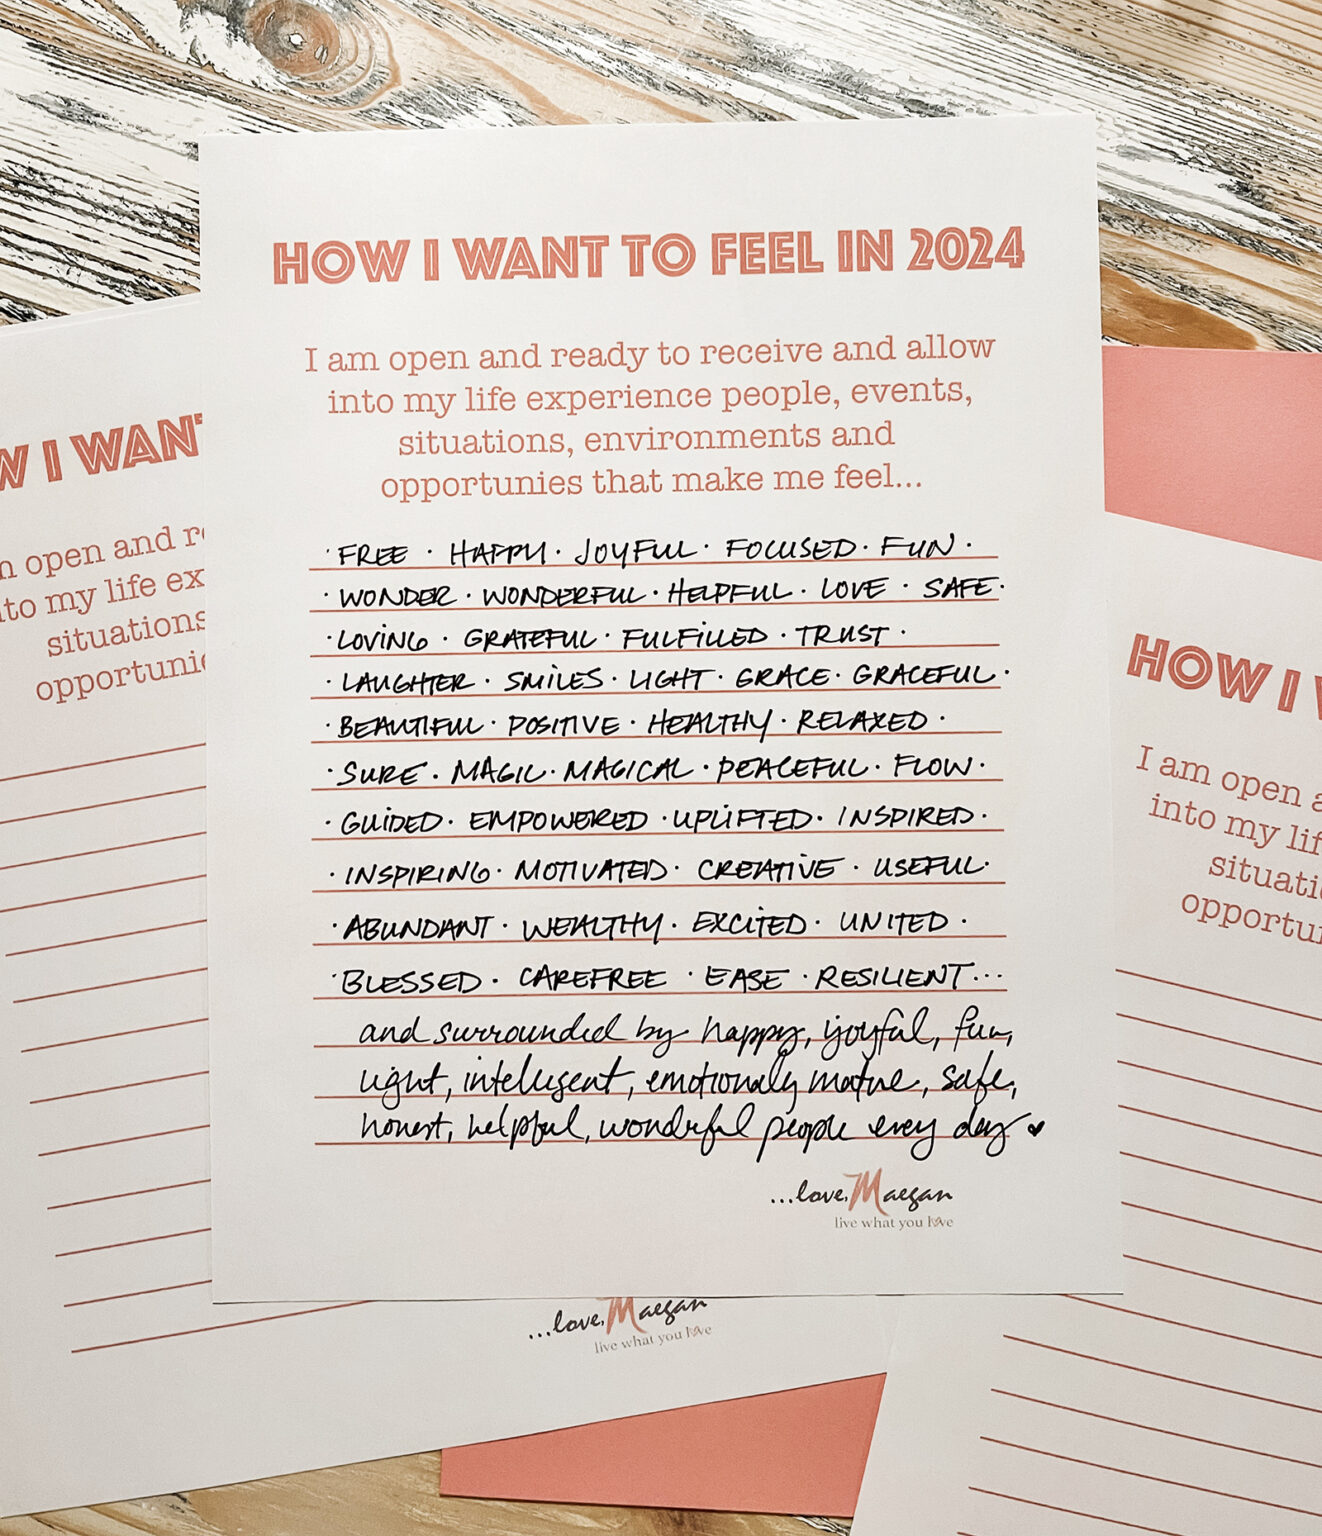 HOW I WANT TO FEEL IN 2024
I am open and ready to receive and allow
into my life experience people, events,
situations, environments and
opportunies that make me feel...
· FREE · HAPPY · JOYFUL · FOCUSED · FUN ·
· WONDER · WONDERFUL · HELPFUL · LOVE · SAFE ·
· LOVING · GRATEFUL · FULFILLED · TRUST ·
· LAUGHTER · SMILES · LIGHT · GRACE · GRACEFUL ·
· BEAUTIFUL · POSITIVE · HEALTHY · RELAXED ·
· SURE · MAGIC · MAGICAL · PEACEFUL · FLOW ·
· GUIDED · EMPOWERED · UPLIFTED · INSPIRED ·
· INSPIRING · MOTIVATED · CREATIVE · USEFUL ·
· ABUNDANT · WEALTHY · EXCITED · UNITED ·
· BLESSED · CAREFREE · EASE · RESILIENT...
and surrounded by happy, joyful, fun,
light, intelligent, emotionally mature, safe,
honest, helpful, wonderful people every day ♥
...love, Maegan
live what you love
W I WANT
n open and re
to my life ex
situations
opportunie
...love, Maegan
live what you love
HOW I W
I am open a
into my lif
situati
opportu